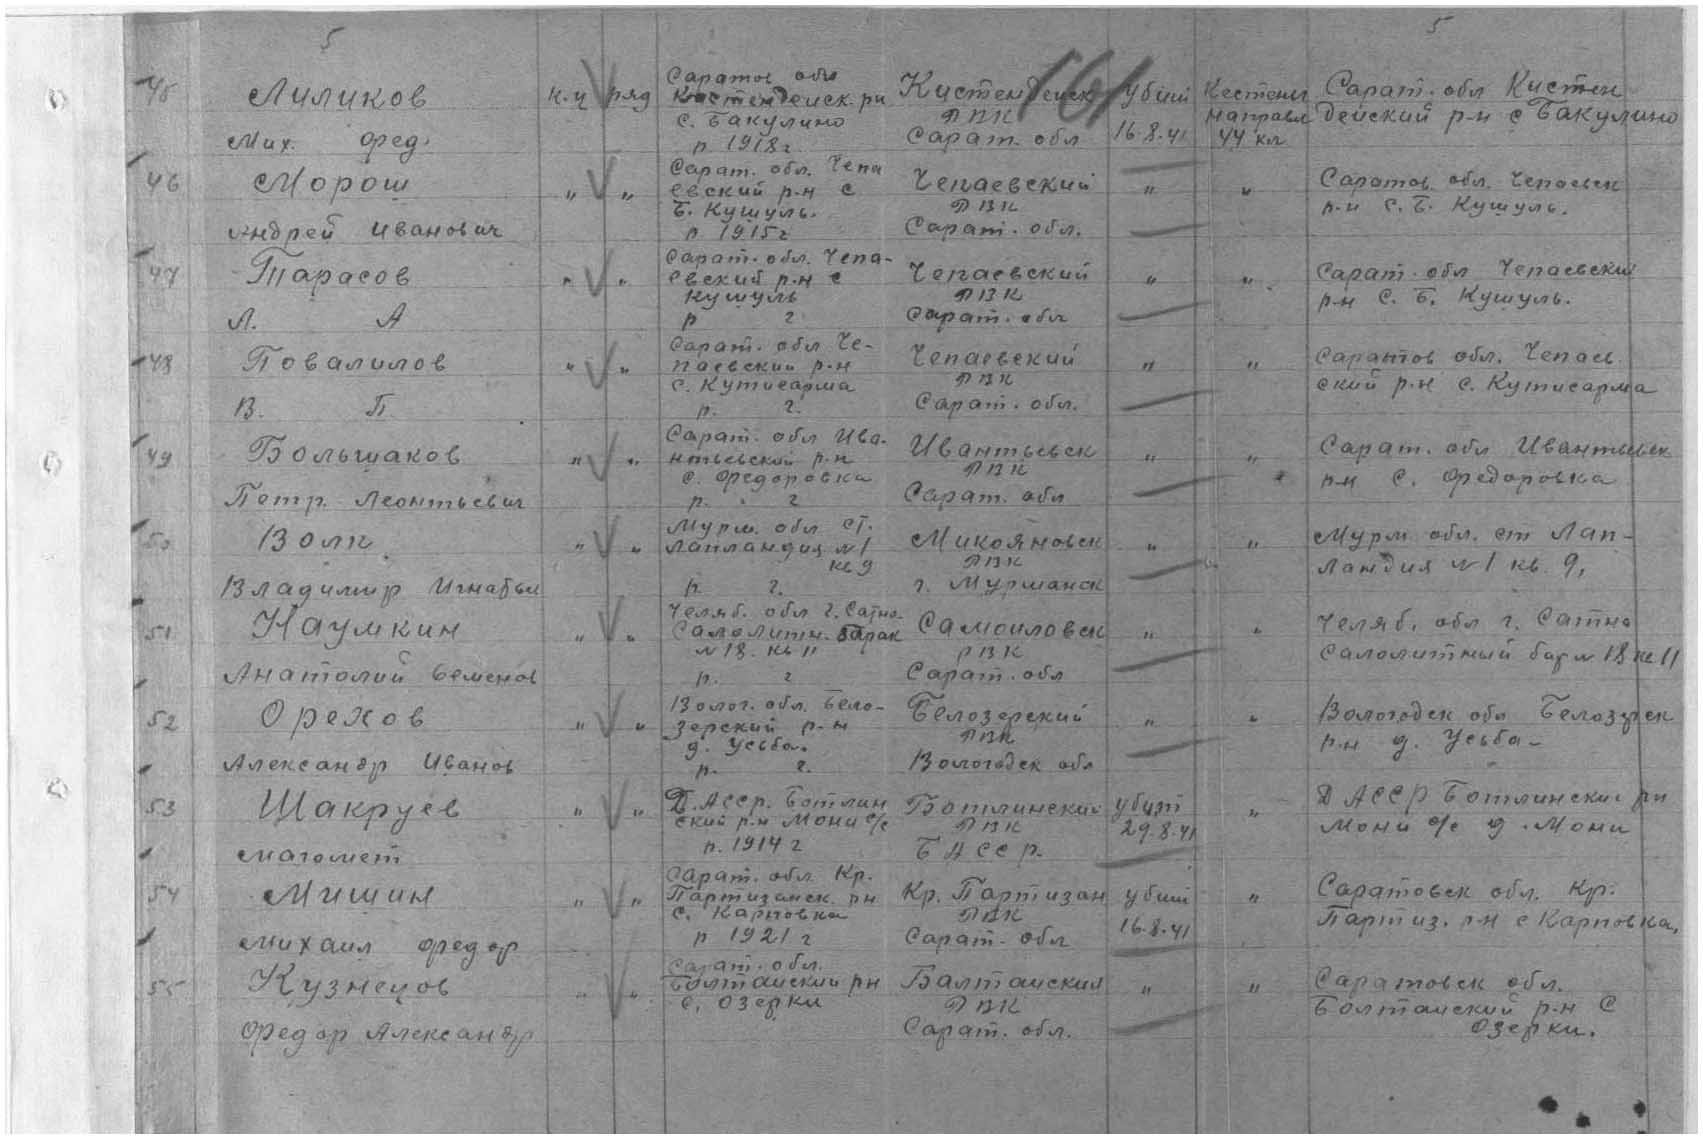 5 5
45 Лиликов к-ц ряд Саратов обл Кистендейск. рн с. Бакулино р. 1918г. Кистендейск РВК Сарат. обл убит 16.8.41 Кестеньг направл 44 кл Сарат. обл Кистен
дейский р-н с Бакулино
Мих. Фед.
46 Морош " " Сарат. обл. Чепа
евский р-н с
Б. Кушуль.
р 1915г Чепаевский
РВК
Сарат. обл. " " Саратов. обл. Чепаевск
р-н с. Б. Кушуль.
Андрей Иванович
47 Тарасов " " Сарат. обл. Чепа-
евский р-н с
Кушуль
р г Чепаевский
РВК
Сарат. обл " " Сарат. обл Чепаевский
р-н с. Б. Кушуль.
Л. А
48 Повалилов " " Сарат. обл Че-
паевский р-н
с. Кутисарма
р. г. Чепаевский
РВК
Сарат. обл. " " Саратов обл. Чепаев
ский р-н с. Кутисарма
В. П
49 Большаков " " Сарат. обл Ива-
нтьевский р-н
с. Федоровка
р. г Ивантьевск
РВК
Сарат. обл " " Сарат. обл Ивантьевск
р-н с. Федоровка
Петр Леонтьевич
50 Волк " " Мурм. обл ст.
Лапландия №1
кв 9
р. г. Микояновск
РВК
г. Мурманск " " Мурм обл. ст Лап-
ландия №1 кв. 9,
Владимир Игнатьи
51 Наумкин " " Челяб. обл г. Сатно.
Самолитн. барак
№18. кв 11
р. г Самоиловск
РВК
Сарат. обл " " Челяб. обл г. Сатно
Самолитный бар №18 кв 11
Анатолий Семенов
52 Орехов " " Волог. обл. Бело-
зерский р-н
д. Усьба.
р. г. Белозерский
РВК
Вологодск обл " " Вологодск обл Белозерск
р-н д. Усьба-
Александр Иванов
53 Шакруев " " Д. АССР. Ботлин
ский р-н Мони с/с
р. 1914 г Ботлинский
РВК
БАССР. убит
29.8.41 " ДАССР Ботлинский рн
Мони с/с д. Мони
Магомет
54 Мишин " " Сарат. обл. Кр.
Партизанск. рн
с. Карповка
р 1921 г Кр. Партизан
РВК
Сарат. обл убит
16.8.41 " Саратовск обл. Кр.
Партиз. р-н с Карповка,
Михаил Федор
55 Кузнецов " " Сарат. обл.
Болтайский рн
с. Озерки Балтаиский
РВК
Сарат. обл. " " Саратовск обл.
Болтайский р-н С
Озерки.
Федор Александр